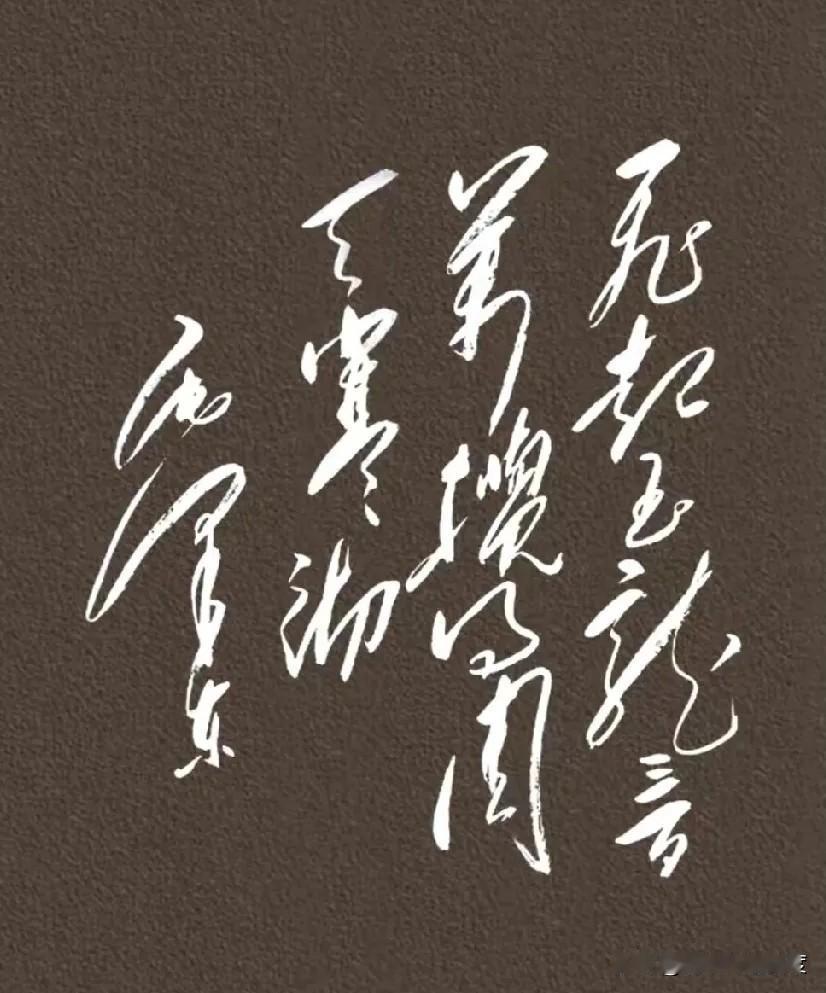 飞起玉龍三百
萬攪得周
天寒彻
毛泽东